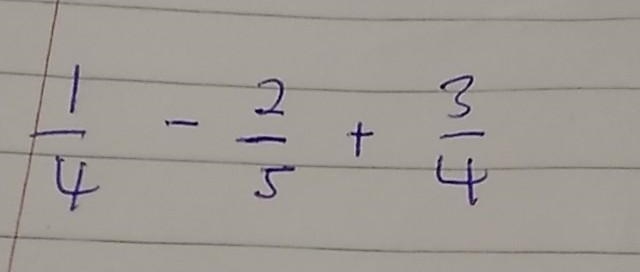 1/4 - 2/5 + 3/4